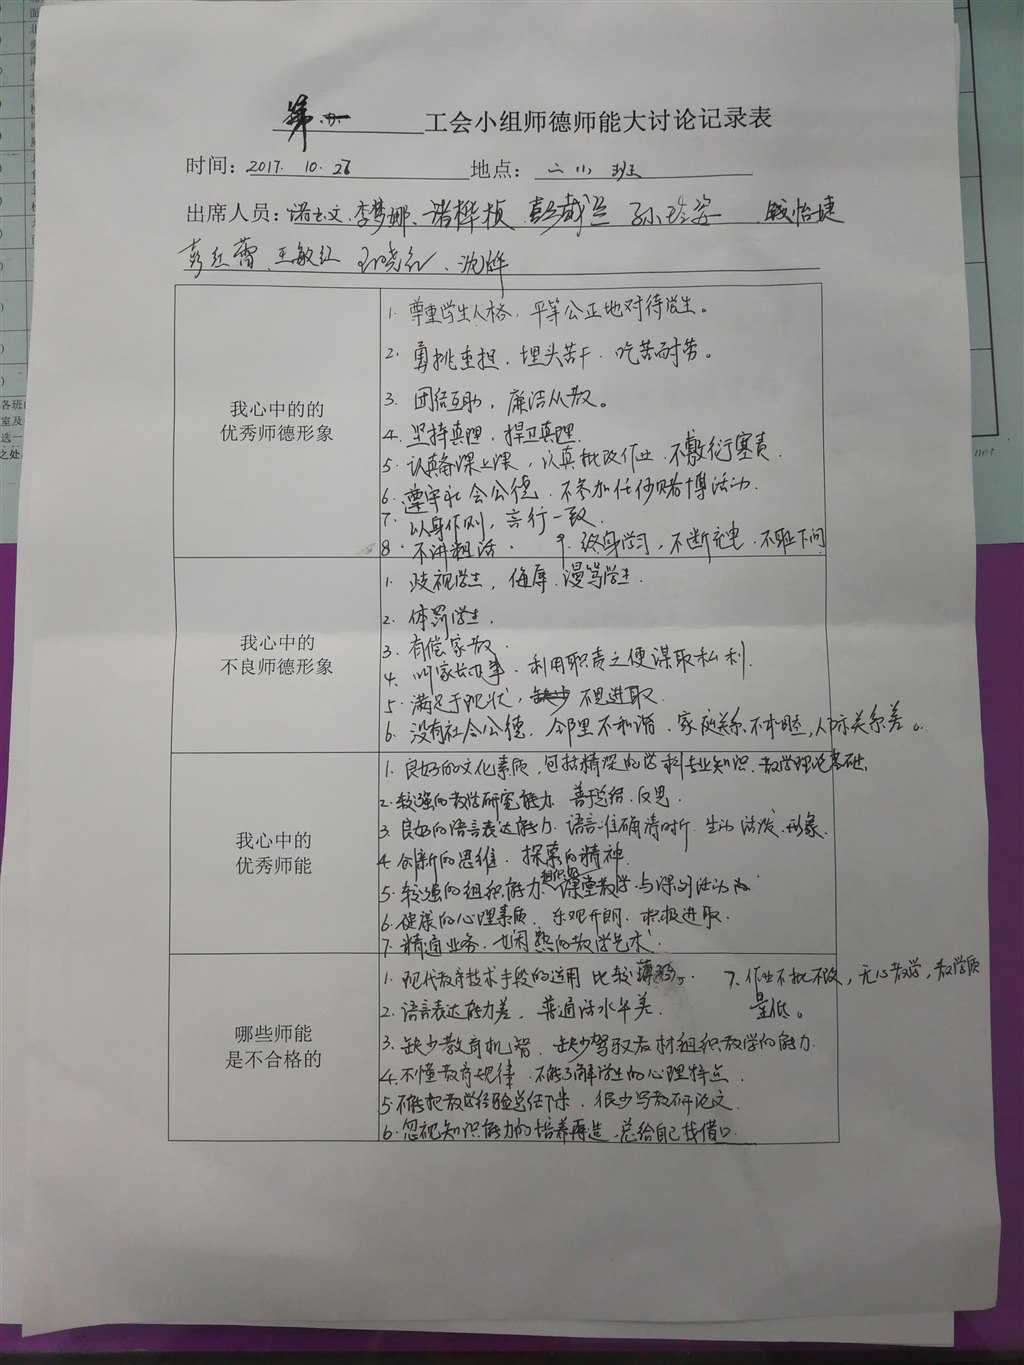 第 工会小组师德师能大讨论记录表
时间: 2017. 10. 26 地点: 二(1) 班
出席人员: 李梦娜、诸桦桢 钱怡婕
彭红蕾、王敏红 王晓红、沈烨
我心中的的
优秀师德形象
1. 尊重学生人格、平等公正地对待学生。
2. 勇挑重担、埋头苦干、吃苦耐劳。
3. 团结互助，廉洁从教。
4. 坚持真理，捍卫真理.
5. 认真备课上课，认真批改作业、不敷衍塞责.
6. 遵守社会公德、不参加任何赌博活动.
7. 以身作则，言行一致.
8. 不讲粗话. 9. 终身学习，不断充电、不耻下问
我心中的
不良师德形象
1. 歧视学生，侮辱、漫骂学生.
2. 体罚学生.
3. 有偿家教.
4. 叫家长办事、利用职责之便谋取私利.
5. 满足于现状，缺少 不思进取.
6. 没有社会公德、邻里不和谐、家庭关系不和睦，人际关系差。
我心中的
优秀师能
1. 良好的文化素质，包括精深的学科专业知识、教学理论基础.
2. 较强的教学研究能力 善于总结、反思.
3. 良好的语言表达能力. 语言准确清晰、生动 活泼、形象.
4. 创新的思维、探索的精神.
5. 较强的组织能力 组织好 课堂教学与课间活动
6. 健康的心理素质、乐观开朗、积极进取.
7. 精通业务、娴熟的教学艺术.
哪些师能
是不合格的
1. 现代教育技术手段的运用 比较薄弱. 7. 作业不批不改，无心教学，教学质
量低。
2. 语言表达能力差、普通话水平差.
3. 缺少教育机智、缺少驾驭教材组织教学的能力.
4. 不懂教育规律、不能了解学生的心理特点.
5. 不能把教学经验总结下来、很少写教研论文.
6. 忽视知识能力的培养再造、总给自己找借口.